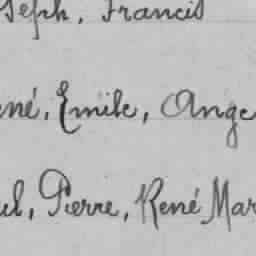 seph, Francis
ené, Emile, Ange
ul, Pierre, René Mar